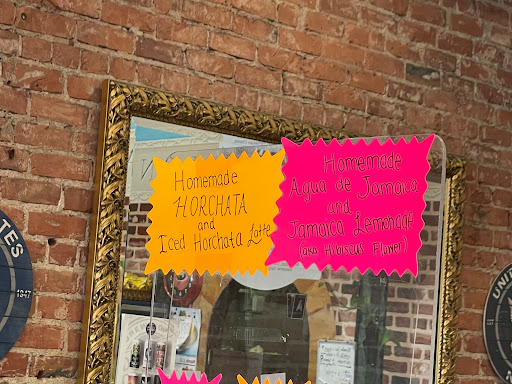 Homemade
HORCHATA
and
Iced Horchata Latte
Homemade
Agua de Jamaica
and
Jamaica Lemonade
(aka Hibiscus Flower)
TES
1947
UNI